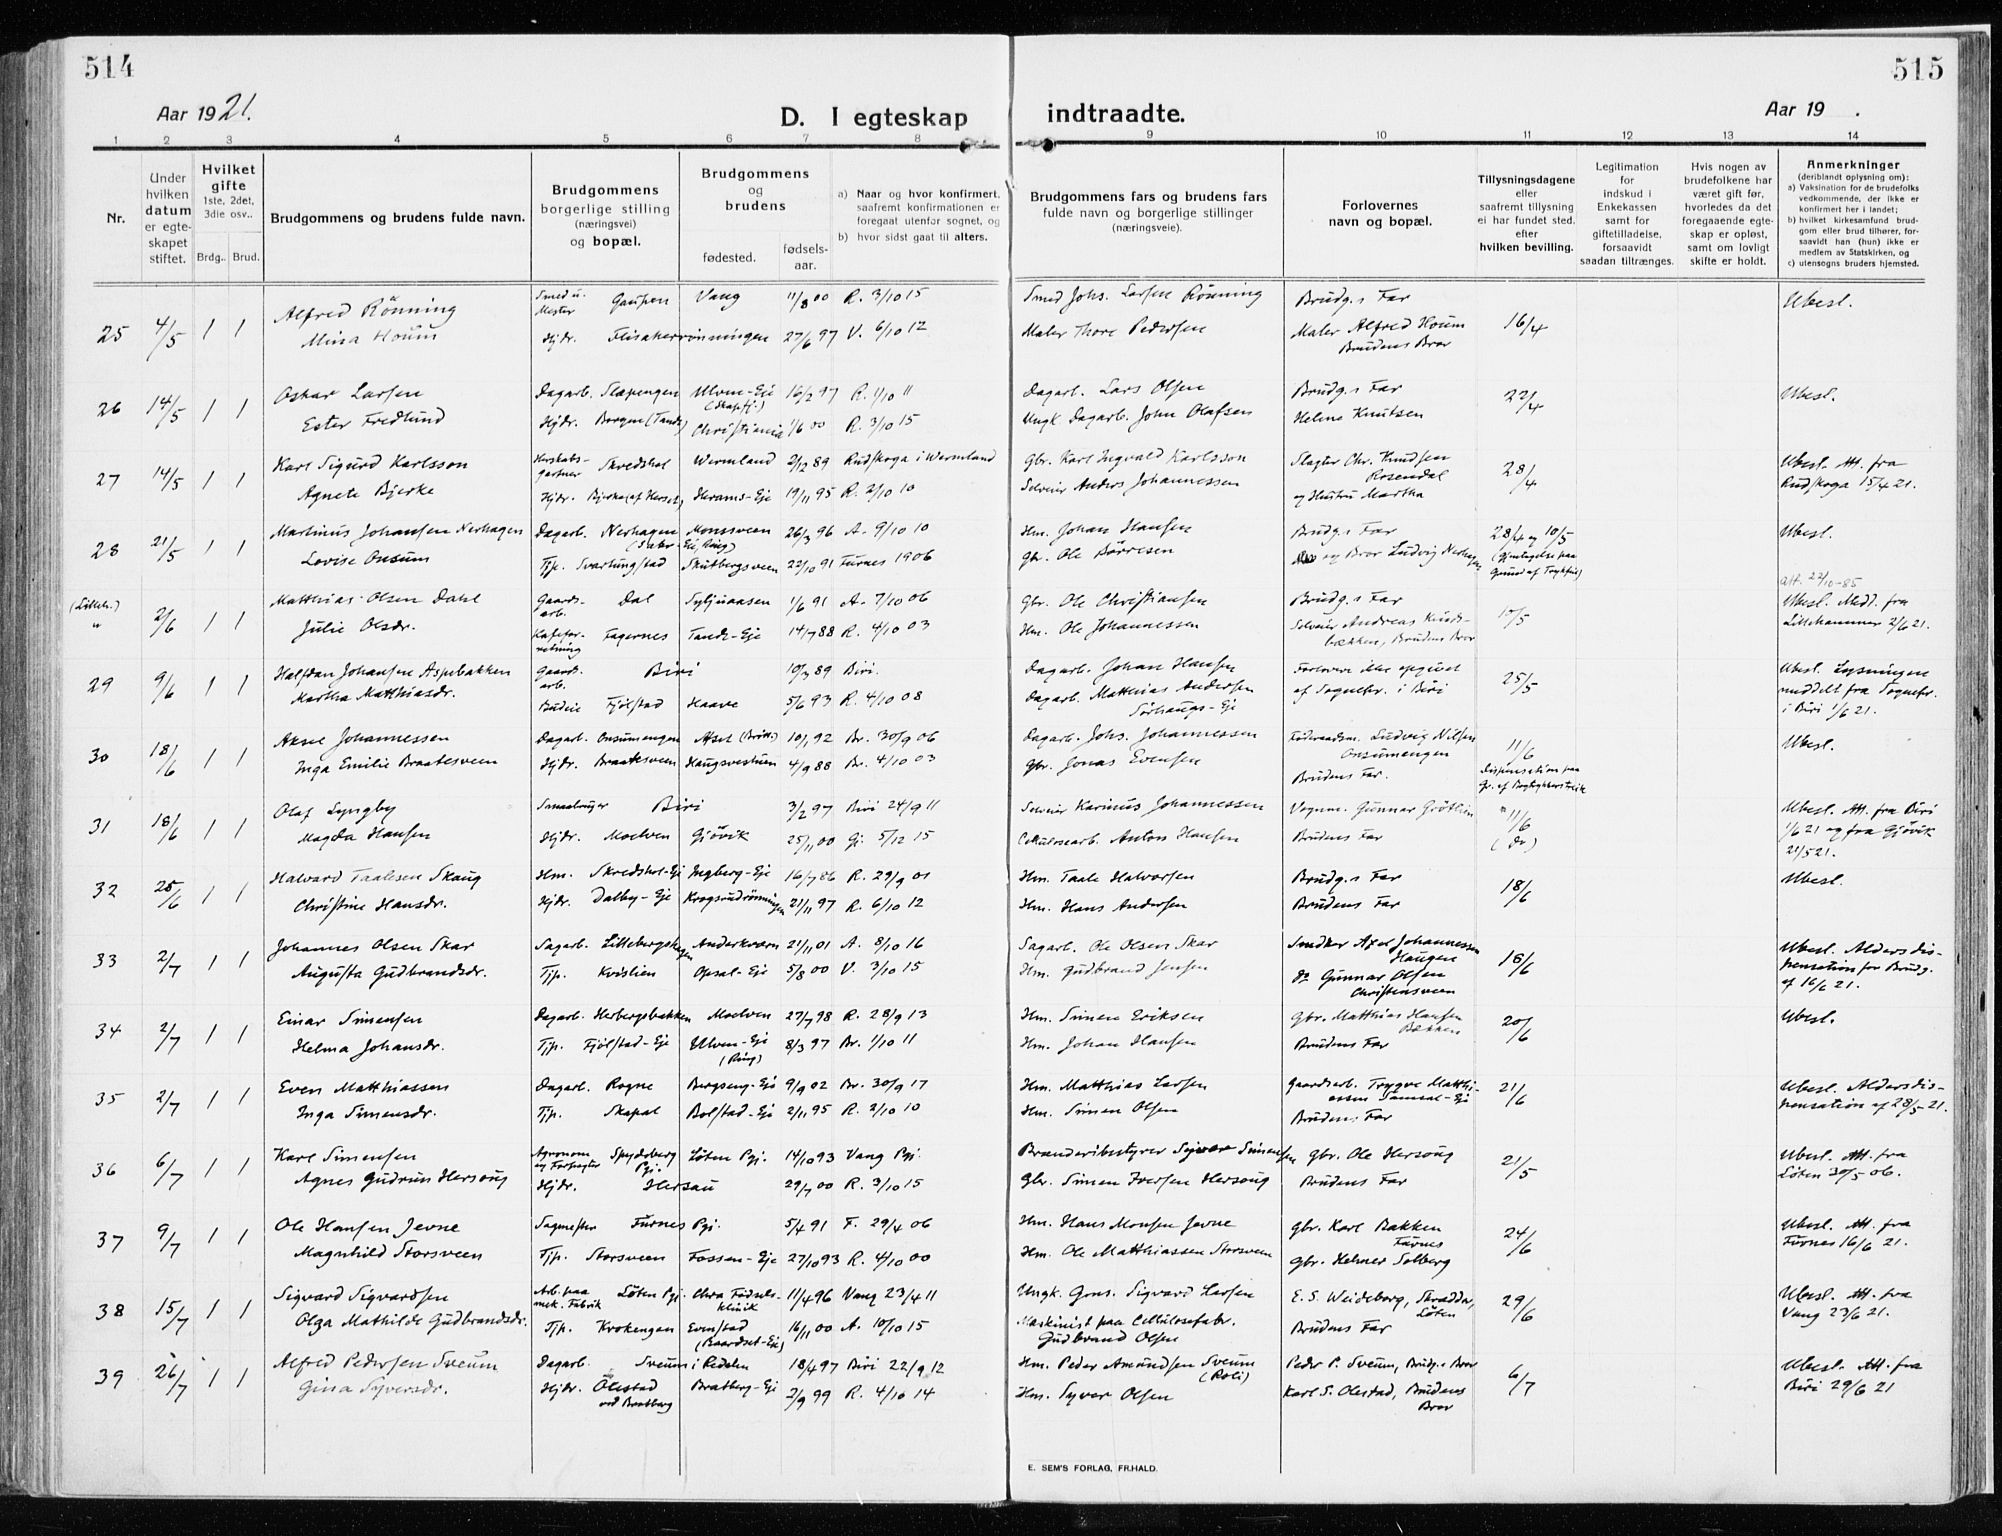 514
515
Aar 1921.
D. I egteskap indtraadte.
Aar 19 .
1 2 3 4 5 6 7 8 9 10 11 12 13 14
Nr.
Under hvilken datum er egteskapet stiftet.
Hvilket gifte 1ste, 2det, 3die osv..
Brdg.. Brud.
Brudgommens og brudens fulde navn.
Brudgommens borgerlige stilling (næringsvei) og bopæl.
Brudgommens og brudens
fødested.
fødsels-aar.
a) Naar og hvor konfirmert, saafremt konfirmationen er foregaat utenfor sognet, og
b) hvor sidst gaat til alters.
Brudgommens fars og brudens fars fulde navn og borgerlige stillinger (næringsveie).
Forlovernes navn og bopæl.
Tillysningsdagene eller saafremt tillysning ei har fundet sted. efter hvilken bevilling.
Legitimation for indskud i Enkekassen samt for giftetilladelse, forsaavidt saadan tiltrænges.
Hvis nogen av brudefolkene har været gift før, hvorledes da det foregaaende egteskap er opløst, samt om lovligt skifte er holdt.
Anmerkninger (deriblandt oplysning om):
a) Vaksination for de brudefolks vedkommende, der ikke er konfirmert her i landet;
b) hvilket kirkesamfund brudgom eller brud tilhører, forsaavidt han (hun) ikke er medlem av Statskirken, og
c) utensogns bruders hjemsted.
25 4/5 1 1 Alfred Rönning Smed u. Mester Gaupen Vang 11/8 00 R. 3/10 15 Smed Johs. Larsen Rönning Brudg.s Far 16/4 Ubesl.
Mina Houm Hjdr. Flisakerrönningen 27/6 97 V. 6/10 12 Maler Thore Pedersen Maler Alfred Houm Brudens Bror
26 14/5 1 1 Oskar Larsen Dagarb. Slapengen Ulven-Eje 16/2 97 R. 1/10 11 Dagarb. Lars Olsen Brudg.s Far 22/4 Ubesl.
Ester Fredlund Hjdr. Borgne (Tande) Christiania 1/6 00 R. 3/10 15 Ungk. Dagarb. John Olafsen Helene Knutsen
27 14/5 1 1 Karl Sigurd Karlsson Herskabs-gartner Skredshol Wermland 2/12 89 Rudskoga i Wermland Gbr. Karl Ingvald Karlsson Slagter Chr. Knudsen Rosendal 28/4 Ubesl. Att. fra Rudskoga 15/4 21.
Agnete Bjerke Hjdr. Bjerke (af Herset) Herams-Eje 19/11 95 R. 2/10 10 Selveier Anders Johannessen og Hustru Martha
28 21/5 1 1 Martinus Johansen Nerhagen Dagarb. Nerhagen Monssveen 26/3 96 A. 9/10 10 Hm. Johan Hansen Brudg.s Far 28/4 og 10/5 Ubesl.
Lovise Onsum Tjp. Svartungstad Skutbergsveen 22/10 91 Furnes 1906 Gbr. Ole Börresen og Bror Ludvig Nerhagen (gjentagelse paa Grund af Trykfeil)
att. 22/10-85
(Lilleh.) " 2/6 1 1 Matthias Olsen Dahl Gaards-arb. Dal Syljuaasen 1/6 91 A. 7/10 06 Gbr. Ole Christiansen Brudg.s Far 15/5 Ubesl. Medd. fra Lillehammer 2/6 21.
Julie Olsdr. Kafeforretning Fagernes Tande-Eje 14/7 88 R. 4/10 03 Hm. Ole Johannessen Selveier Andreas Kindsbækken, Brudens Bror
29 9/6 1 1 Halfdan Johansen Aspebakken Gaards-arb. Biri 10/3 89 Biri. Dagarb. Johan Hansen Forlovere ikke opgivet af Sognepr. i Biri 25/5 Ubesl. Lysningen meddelt fra Sognepr. i Biri 1/6 21.
Martha Matthiasdr. Budeie Fjölstad Haave 5/6 93 R. 4/10 08 Dagarb. Matthias Andersen Sörhaugs-Eje
30 18/6 1 1 Aksel Johannessen Dagarb. Onsumengen Aset (Brött.) 10/1 92 Br. 30/9 06 Dagarb. Johs. Johannessen Föderaadsm. Ludvig Nilsen Onsumengen 11/6 Ubesl.
Inga Emilie Braatesveen Hjdr. Braatesveen Haugsvestuen 4/9 88 Br. 4/10 03 Gbr. Jonas Evensen Brudens Far. dispensation paa Gr. af Bogtrykkerstreik
31 18/6 1 1 Olaf Lyngby Smaabruger Biri 3/2 97 Biri 24/9 11 Selveier Karinus Johannessen Vognm. Gunnar Grötlien 11/6 (do) Ubesl. Att. fra Biri 1/6 21 og fra Gjövik 21/5 21.
Magda Hansen Hjdr. Moelven Gjövik 25/11 00 Gj. 5/12 15 Cellulosearb. Anton Hansen Brudens Far
32 25/6 1 1 Halvard Taalesen Skaug Hm. Skredshol-Eje Ingberg-Eje 16/7 86 R. 29/9 01 Hm. Taale Halvorsen Brudg.s Far 18/6 Ubesl.
Christine Hansdr. Hjdr. Dalby-Eje Krogsrudrönningen 21/11 97 R. 6/10 12 Hm. Hans Andersen Brudens Far
33 2/7 1 1 Johannes Olsen Skar Sagarb. Lillebergshagen Anderkværn 21/11 01 A. 8/10 16 Sagarb. Ole Olsen Skar Snedker Axel Johannessen Haugen 18/6 Ubesl. Aldersdispensation for Brudg. af 16/6 21.
Augusta Gudbrandsdr. Tjp. Kvislien Opsal-Eje 5/8 00 V. 3/10 15 Hm. Gudbrand Jensen do Gunnar Olsen Christensveen
34 2/7 1 1 Einar Simensen Dagarb. Herbergsbakken Moelven 27/7 98 R. 28/9 13 Hm. Simen Eriksen Gbr. Matthias Hansen Bækken 20/6 Ubesl.
Helma Johansdr. Tjp. Fjölstad-Eje Ulven-Eje (Ring) 8/3 97 Br. 1/10 11 Hm. Johan Hansen Brudens Far
35 2/7 1 1 Even Matthiassen Dagarb. Rogne Bergseng-Eje 9/9 02 Br. 30/9 17 Hm. Matthias Larsen Gaardsarb. Trygve Matthiassen Samsal-Eje 21/6 Ubesl. Aldersdispensation af 28/5 21.
Inga Simensdr. Tjp. Skapal Bolstad-Eje 2/11 95 R. 2/10 10 Hm. Simen Olsen Brudens Far
36 6/7 1 1 Karl Simensen Agronom og Forpagter Spydeberg Pgj. Löten Pgj. 14/10 93 Vang Pgj. Brænderibestyrer Syver Simensen Gbr. Ole Hersoug 21/5 Ubesl. Att. fra Löten 30/5 06.
Agnes Gudrun Hersoug Hjdr. Hersau 29/7 00 R. 3/10 15 Gbr. Simen Iversen Hersoug Brudens Far
37 9/7 1 1 Ole Hansen Jevne Sagmester Furnes Pgj. 5/4 91 F. 29/4 06 Hm. Hans Monsen Jevne Gbr. Karl Bakken Furnes 24/6 Ubesl. Att. fra Furnes 16/6 21.
Magnhild Storsveen Tjp. Storsveen Fossen-Eje 27/10 93 R. 4/10 00 Hm. Ole Matthiassen Storsveen Gbr. Helmer Solberg
38 15/7 1 1 Sigvard Sigvardsen Arb. paa mek. Fabrik Löten Pgj. Chra Födselsklinik 11/4 96 Vang 23/4 11 Ungk. Grns. Sigvard Larsen E. S. Weideborg, Skrædder, Löten 29/6 Ubesl. Att. fra Vang 23/6 21.
Olga Mathilde Gudbrandsdr. Tjp. Krokengen Evenstad (Baardset-Eje) 16/11 00 A. 10/10 15 Maskinist paa Cellulosefabr. Gudbrand Olsen Brudens Far
39 26/7 1 1 Alfred Pedersen Sveum Dagarb. Sveum i Redalen 18/4 97 Biri 22/9 12 Hm. Peder Amundsen Sveum (Roli) Peder P. Sveum, Brudg.s Bror 6/7 Ubesl. Att. fra Biri 29/6 21
Gina Syversdr. Hjdr. Ölestad ved Bratberg Bratberg-Eje 2/9 99 R. 4/10 14 Hm. Syver Olsen Karl S. Olestad, Brudens Bror
E. SEM'S FORLAG, FR.HALD.